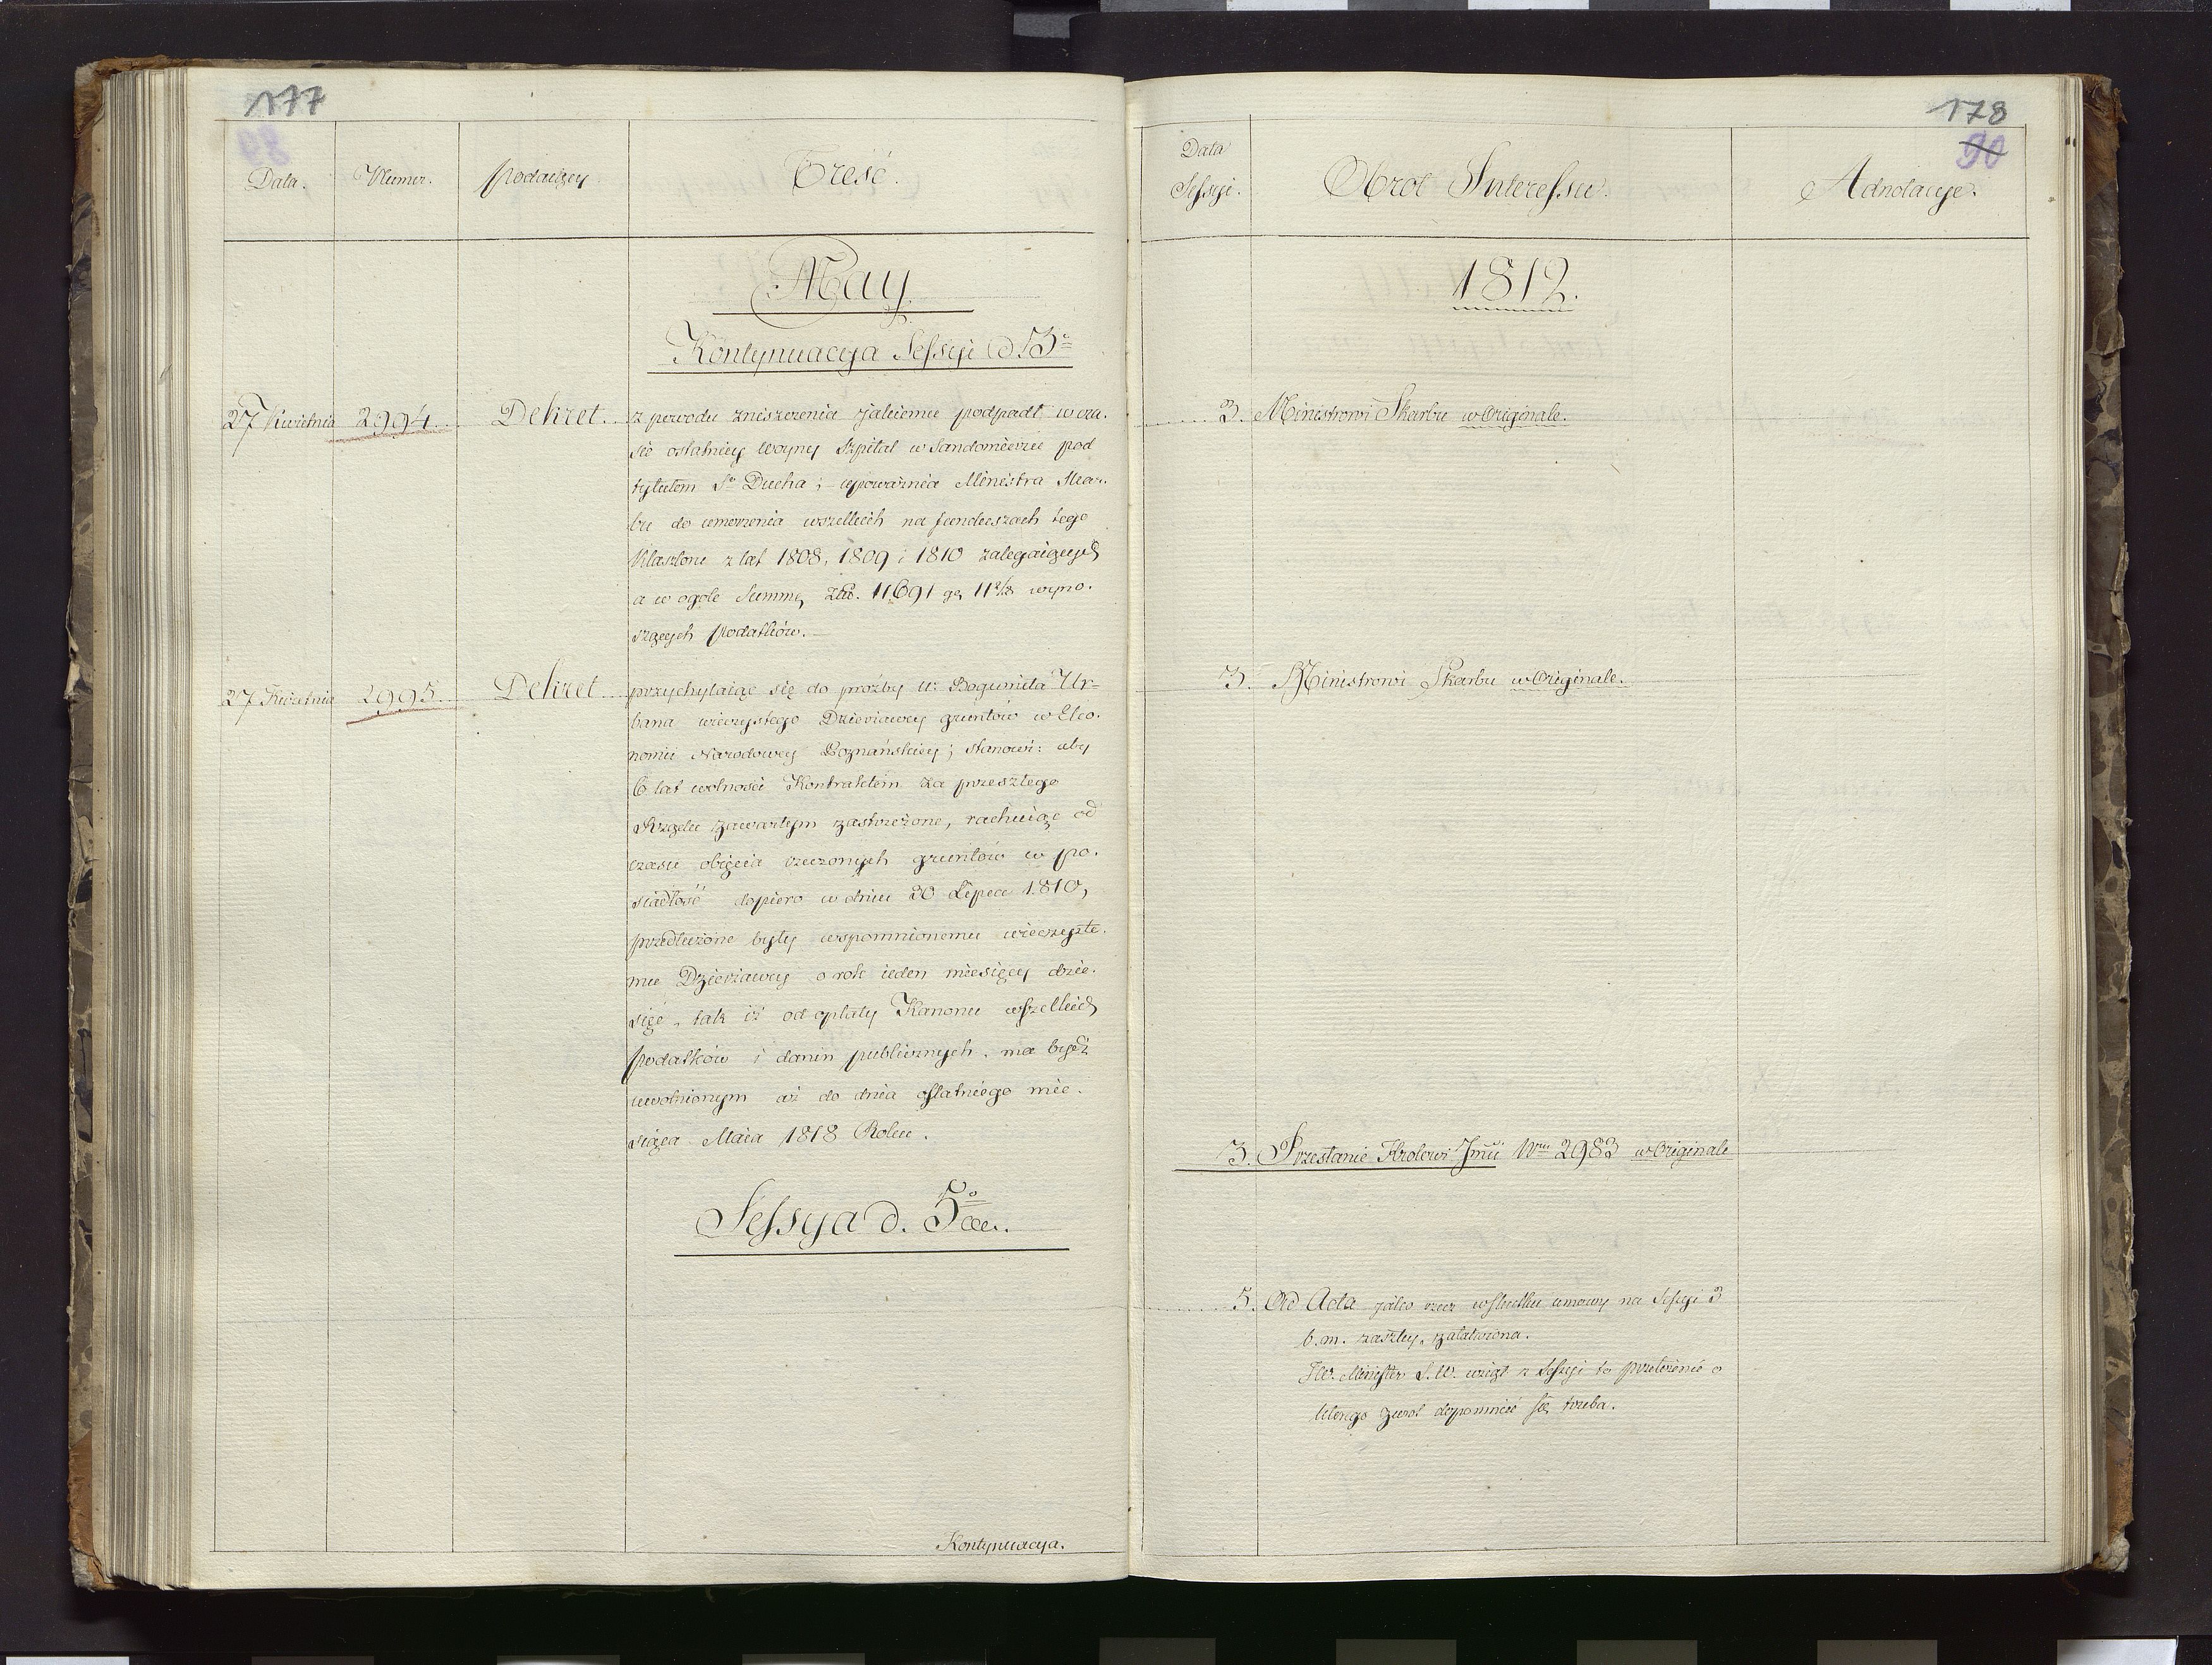 177
89
Data.
Numer.
Podaiący
Treść.
May
Kontynuacya Sessyi d 3º
27 Kwietnia 2994. Dekret. z powodu zniszczenia jakiemu podpadł w cza-
sie ostatniey Woyny Szpital w Sandomierzu pod
tytułem Sº Ducha; upoważnia Ministra Skar-
bu do umorzenia wszelkich na funduszach tego
Klasztoru z lat 1808, 1809 i 1810 zalegaiących
a w ogole Summę Złł. 11691 gr 11 2/3 wyno-
szących podatków.
27 Kwietnia 2995. Dekret przychylaiąc się do proźby Ur. Bogumiła Ur-
bana wieczystego Dzierżawcy gruntów w Eko-
nomii Narodowey Poznańskiey; stanowi: aby
6 lat wolności Kontraktem za przeszłego
Rządu zawartym zastrzeżone, rachuiąc od
czasu obięcia rzeczonych gruntów w po-
siadłość dopiero w dniu 20 Lipca 1810,
przedłużone były wspomnionemu wieczyste-
mu Dzierżawcy o rok ieden miesięcy dzie-
sięć, tak iż od opłaty Kanonu wszelkich
podatków i danin publicznych, ma bydź
uwolnionym aż do dnia ostatniego mie-
siąca Maia 1818 Roku.
Sessya d. 5º
Kontynuacya.
178
90
Data
Sessyi.
Obrot Interessu.
Adnotacye.
1812.
3. Ministrowi Skarbu w Originale.
3. Ministrowi Skarbu w Originale.
3. Przesłanie Krolowi Jmci Nru 2983 w Originale
5. Ad Acta jako rzecz w skutku umowy na Sessyi 3
b. m. zaszłey, załatwiona.
JW. Minister S. W. wziął z Sessyi to przełożenie o
którego zwrot dopomnieć się trzeba.